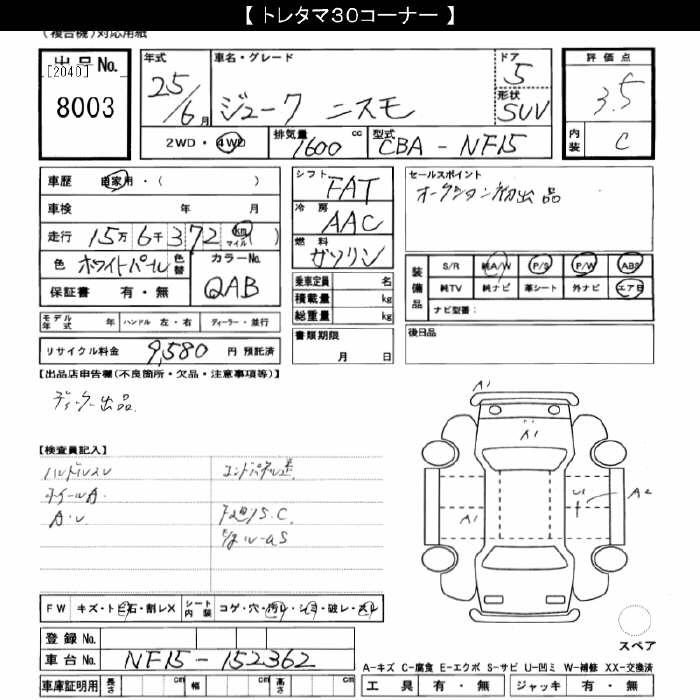 【 トレタマ30コーナー 】
(複合機)対応用紙
出品No.
[2040]
8003
年式
25/6月
車名・グレード
ジューク ニスモ
ドア
5
形状
SUV
評価点
3.5
内装
C
2WD・4WD
排気量
1600 cc
型式
CBA - NF15
車歴 自家用・( )
車検 年 月
走行 15万6千372 km マイル ( )
色 ホワイトパール 色替
カラーNo.
QAB
保証書 有・無
シフト
FAT
冷房
AAC
燃料
ガソリン
乗車定員 名
積載量 kg
総重量 kg
セールスポイント
オークション初出品
装備品
S/R 純A/W P/S P/W ABS
純TV 純ナビ 革シート 外ナビ エアB
ナビ型番:
モデル年式 年 ハンドル 左・右 ディーラー・並行
書類期限
月 日
後日品
リサイクル料金 9,580 円 預託済
【出品店申告欄(不良箇所・欠品・注意事項等)】
ディーラー出品
【検査員記入】
ハンドルスレ
ホイールA
A・U
S.C
A1
A1
A1
U1
A2
FW キズ・トビ石・割レX シート内装 コゲ・穴・汚レ・シミ・破レ・スレ
登録No.
車台No. NF15-152362
スペア
A-キズ C-腐食 E-エクボ S-サビ U-凹ミ W-補修 XX-交換済
車庫証明用 長さ cm 幅 cm 高さ cm
工具 有・無 ジャッキ 有・無